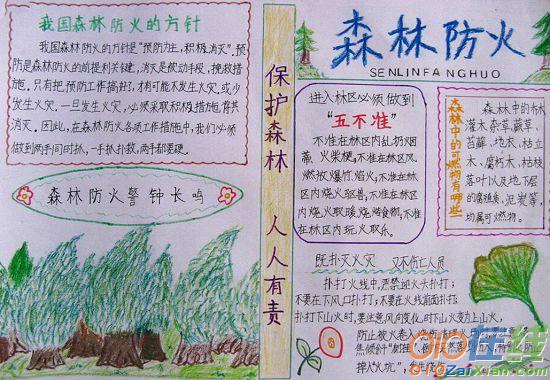 我国森林防火的方针
我国森林防火的方针是"预防为主,积极消灭"。预
防是森林防火的前提和关键,消灭是被动手段,挽救措
施。只有把预防工作搞好了,才有可能不发生火灾,或少
发生火灾。一旦发生火灾,必须采取积极措施,将其
消灭。因此,在森林防火各项工作措施中,我们必须
做到两手同时抓,一手抓扑救,两手都要硬。
森林防火警钟长鸣
保护森林 人人有责
森林防火
SENLINFANGHUO
进入林区必须做到
"五不准"
不准在林区内乱扔烟
蒂、火柴梗,不准在林区
燃放爆竹、焰火,不准在林区
内烧火驱兽,不准在林区
内烧火取暖、烧烤食物,不准
在林区内玩火取乐。
森林中的可燃物有哪些
森林中的树林
灌木、杂草、蕨草、
苔藓、地衣、枯立
木、腐朽木、枯枝
落叶以及地下层
的腐殖质、泥炭等,
均属可燃物。
既扑灭火灾 又不伤亡人员
扑打火线中,严禁迎火头扑打;
不要在下风口扑打;不要在火线前面扑打;
扑打下山火时,要注意风向变化,时下山火变为上山火,
防止被火卷入
焦倾斜
掉入"火坑",
ZaiXian.com